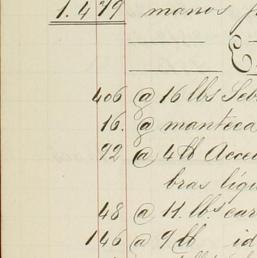 1.479 manos
406 @ 16 lbs Seb
16. @ manteca
92 @ 4 lb Acce
bras líqu
48 @ 11. lbs car
146 @ 9 lb id